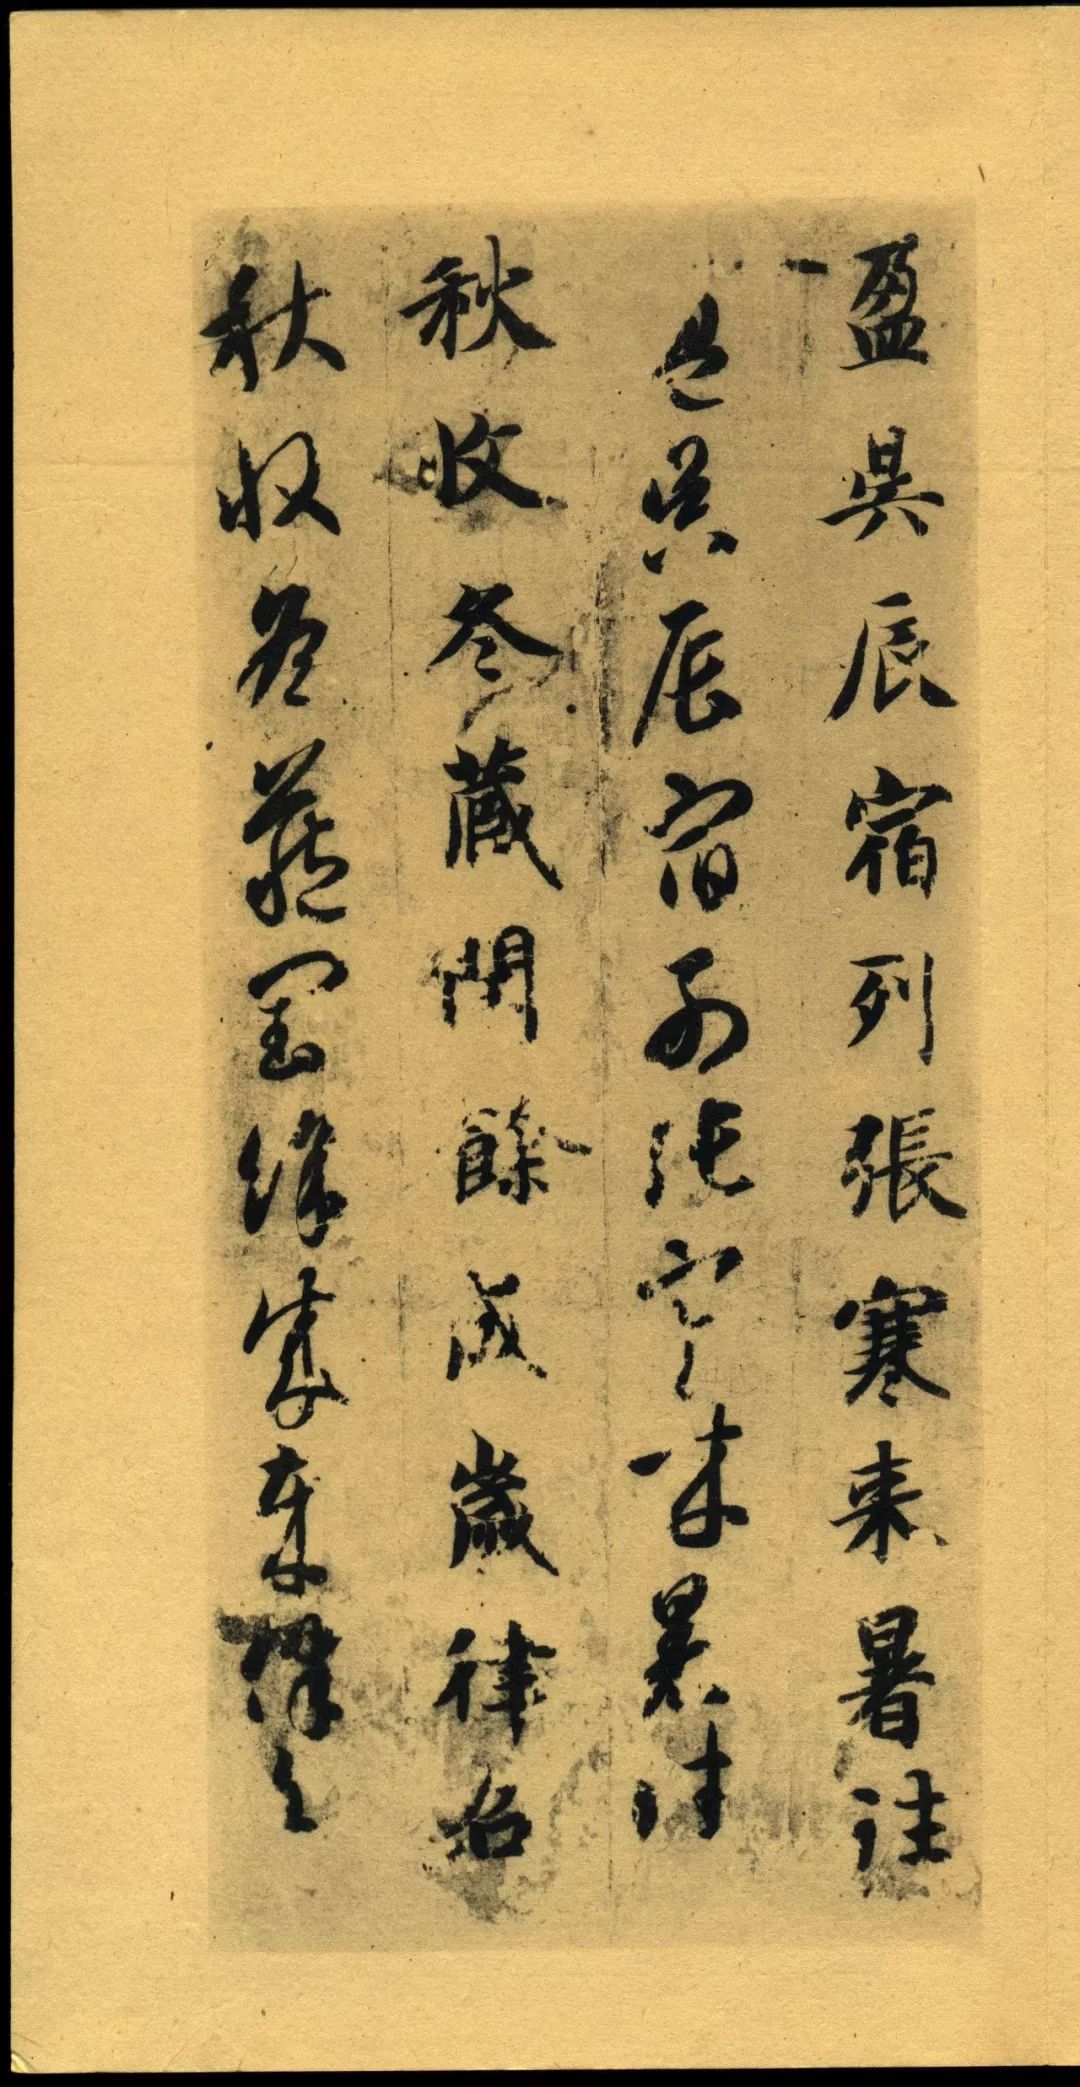 盈昃辰宿列張寒来暑往
盈昃辰宿列張寒来暑往
秋收冬藏閏餘成歲律吕
秋收冬藏閏餘成歲律吕